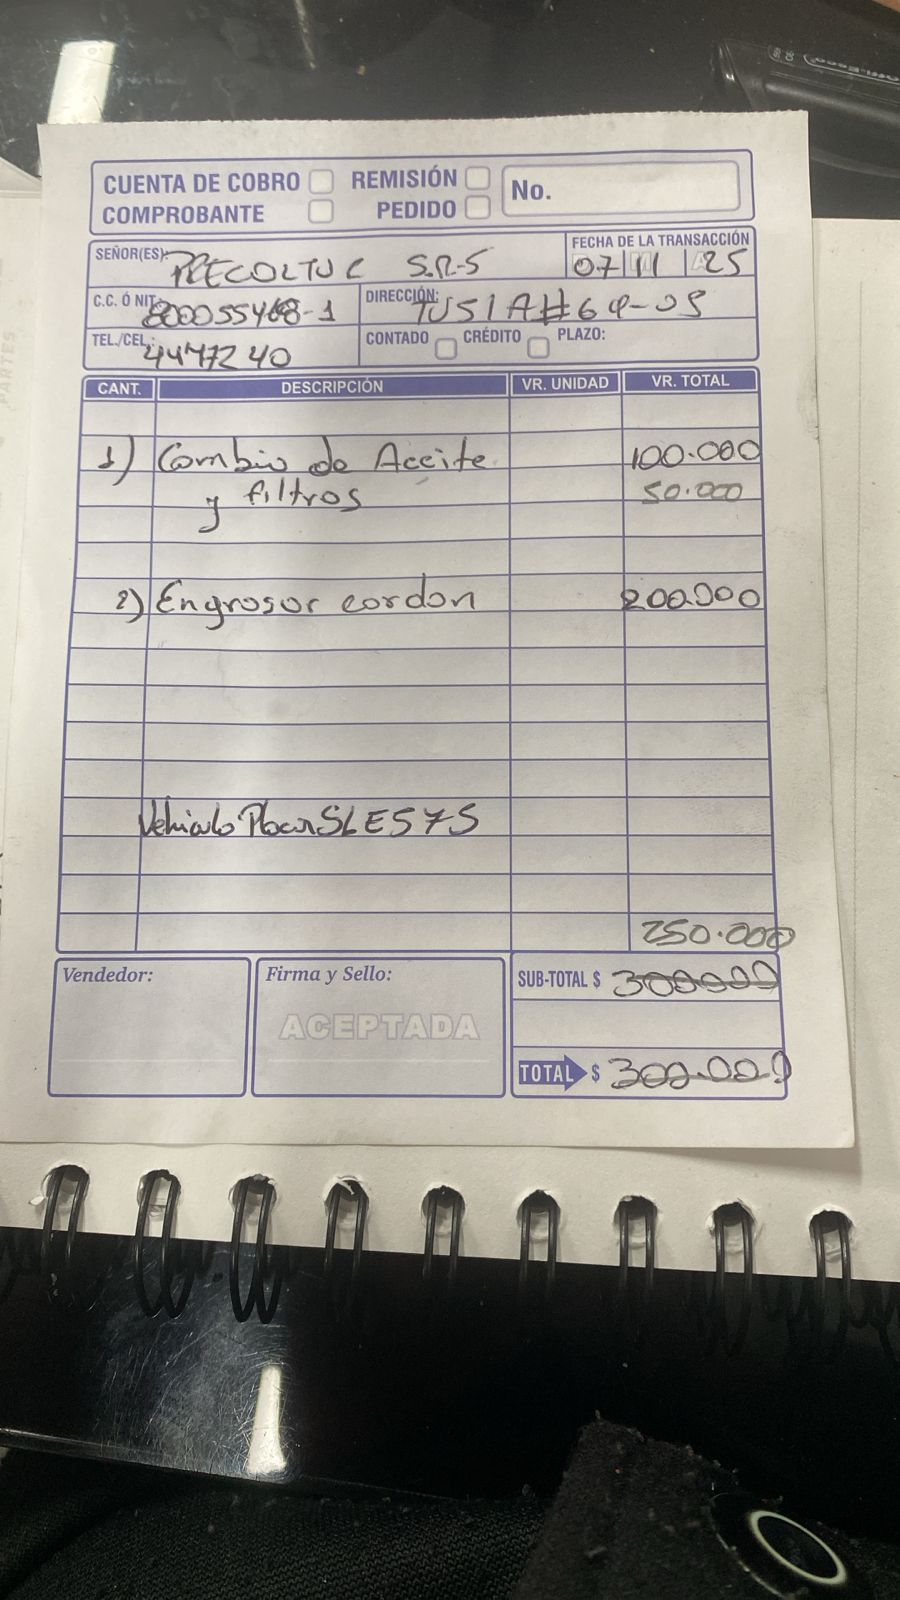 CUENTA DE COBRO REMISIÓN No.
COMPROBANTE PEDIDO
SEÑOR(ES): S.A.S FECHA DE LA TRANSACCIÓN
07 11 25
C.C. Ó NIT: 800055468-1 DIRECCIÓN: TU51A#64-05
TEL./CEL.: 4447240 CONTADO CRÉDITO PLAZO:
CANT. DESCRIPCIÓN VR. UNIDAD VR. TOTAL
1) Cambio de Aceite 100.000
y filtros 50.000
2) Engrosar cordon 200.000
Vehiculo Placas SLE575
250.000
Vendedor: Firma y Sello: SUB-TOTAL $ 300000
ACEPTADA
TOTAL $ 300.000